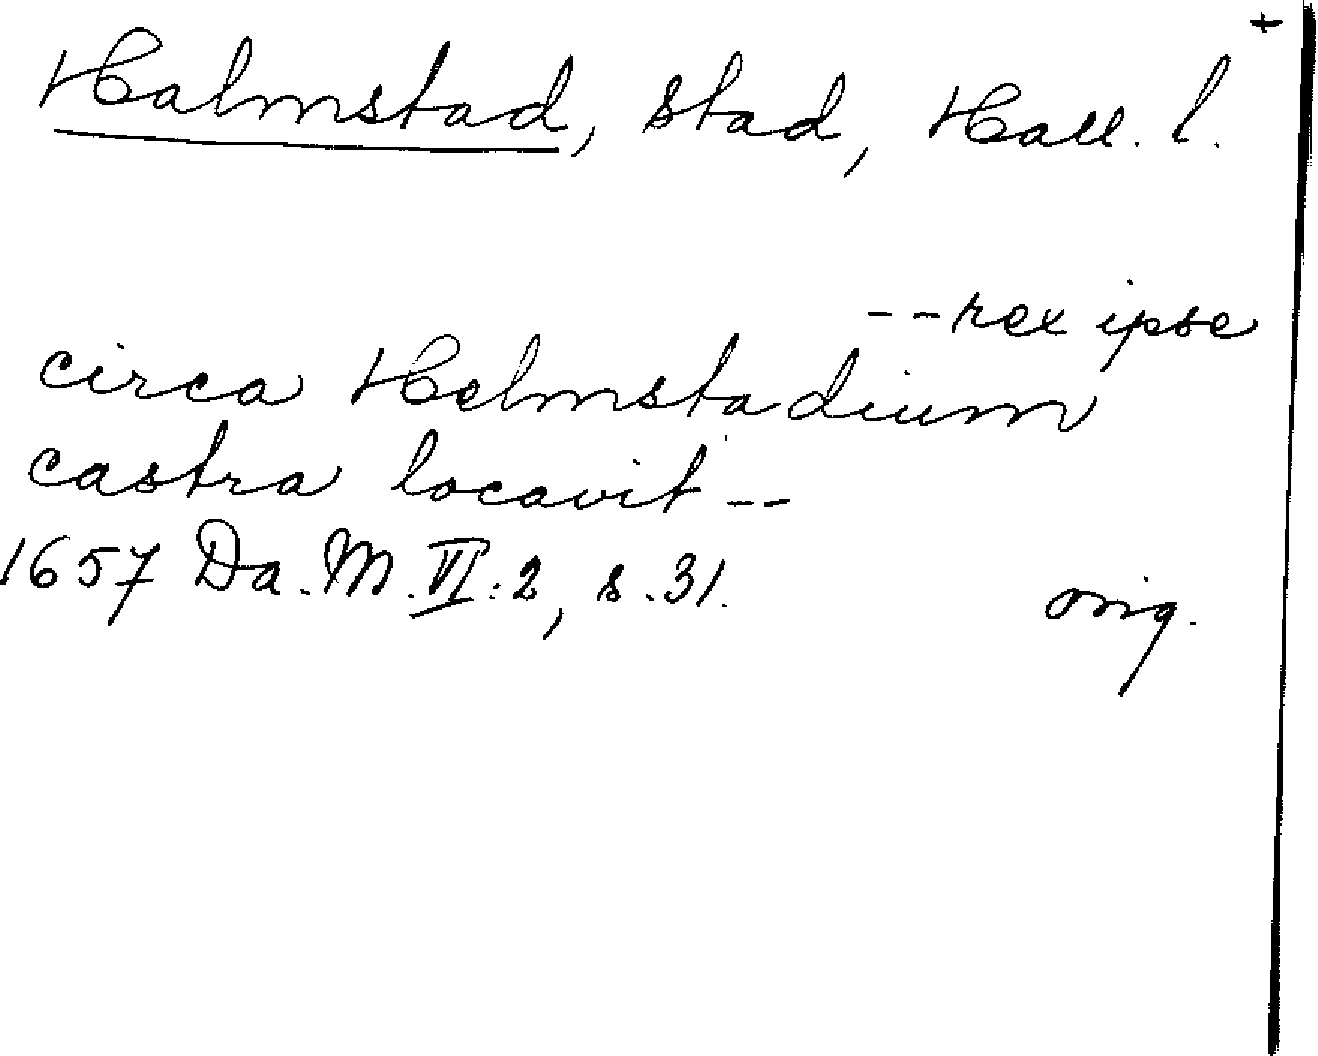 +
Halmstad, stad, Hall. l.
--rex ipse
circa Helmstadium
castra locavit--
1657 Da. M. VI:2, s. 31. orig.